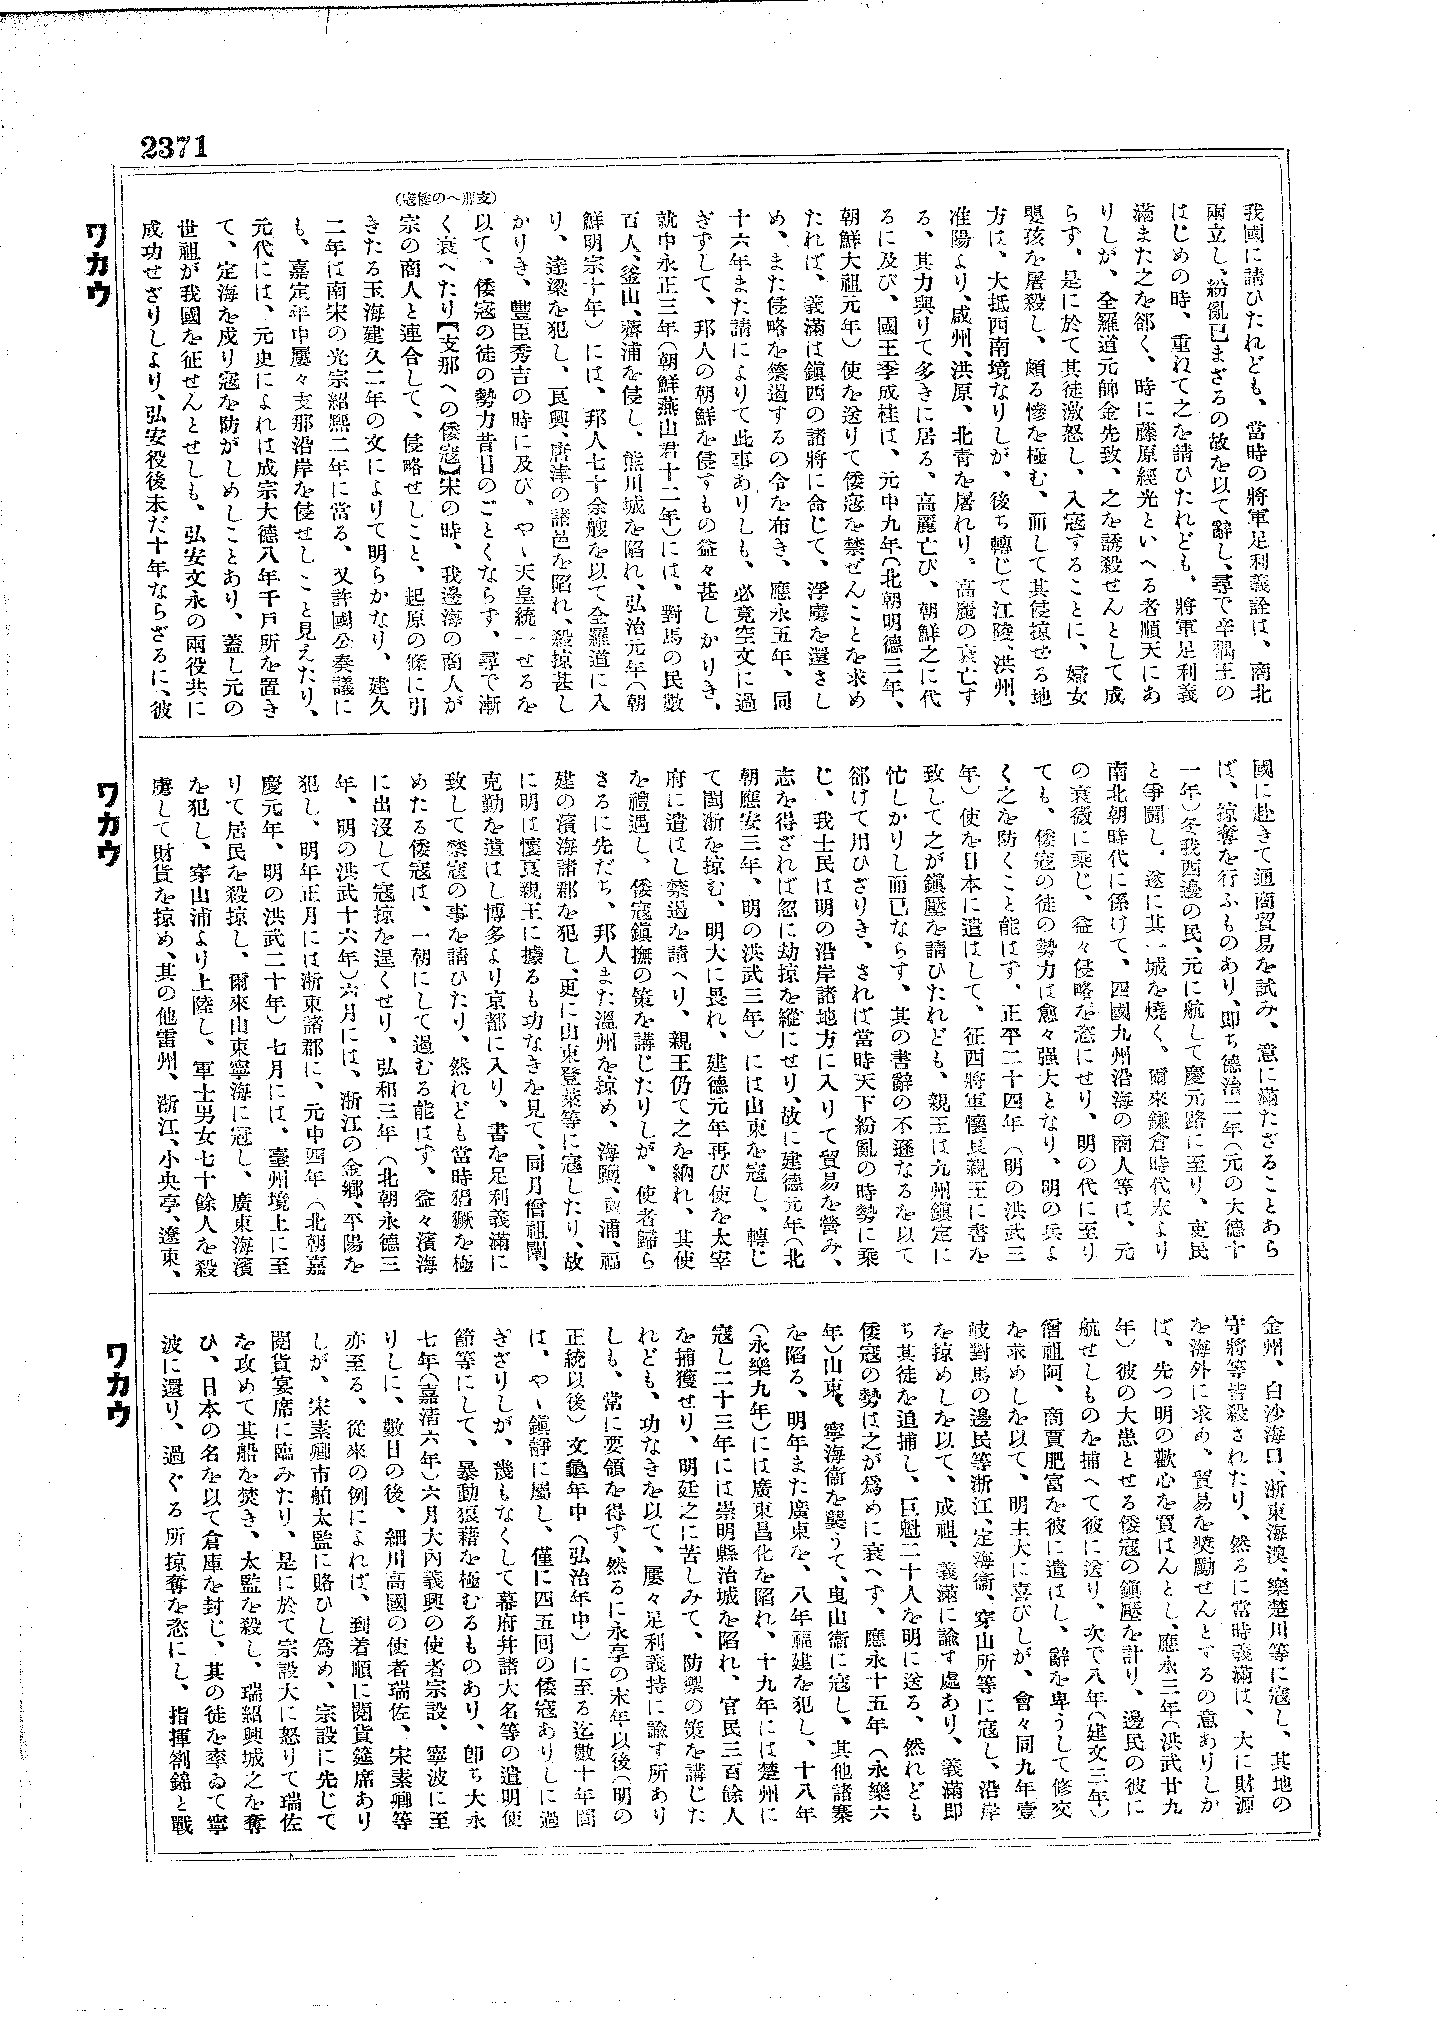 2371
ワカウ
ワカウ
ワカウ
(支那への倭寇)
我國に請ひたれども、當時の將軍足利義詮は、南北
兩立し、紛亂已まざるの故を以て辭し、尋で辛禑王の
はじめの時、重ねて之を請ひたれども、將軍足利義
滿また之を郤く、時に藤原經光といへる者順天にあ
りしが、全羅道元帥金先致、之を誘殺せんとして成
らず、是に於て其徒激怒し、入寇することに、婦女
嬰孩を屠殺し、頗る慘を極む、而して其侵掠せる地
方は、大抵西南境なりしが、後ち轉じて江陵、洪州、
淮陽より、咸州、洪原、北青を屠れり。高麗の衰亡す
る、其力與りて多きに居る、高麗亡び、朝鮮之に代
るに及び、國王李成桂は、元中九年(北朝明德三年、
朝鮮太祖元年)使を送りて倭寇を禁ぜんことを求め
たれば、義滿は鎭西の諸將に命じて、浮虜を還さし
め、また侵略を禁遏するの令を布き、應永五年、同
十六年また請によりて此事ありしも、必竟空文に過
ぎずして、邦人の朝鮮を侵すもの益々甚しかりき、
就中永正三年(朝鮮燕山君十二年)には、對馬の民數
百人、釜山、薺浦を侵し、熊川城を陷れ、弘治元年(朝
鮮明宗十年)には、邦人七十余艘を以て全羅道に入
り、達梁を犯し、長興、唐津の諸邑を陷れ、殺掠甚し
かりき、豐臣秀吉の時に及び、やゝ天皇統一せるを
以て、倭寇の徒の勢力昔日のごとくならず、尋で漸
く衰へたり【支那への倭寇】宋の時、我邊海の商人が
宗の商人と連合して、侵略せしこと、起原の條に引
きたる玉海建久二年の文によりて明らかなり、建久
二年は南宋の光宗紹熙二年に當る、又許國公奏議に
も、嘉定年中屢々支那沿岸を侵せしこと見えたり、
元代には、元史によれは成宗大德八年千戸所を置き
て、定海を戍り寇を防がしめしことあり、蓋し元の
世祖が我國を征せんとせしも、弘安文永の兩役共に
成功せざりしより、弘安役後未だ十年ならざるに、彼
國に赴きて通商貿易を試み、意に滿たざることあら
ば、掠奪を行ふものあり、即ち德治二年(元の大德十
一年)冬我西邊の民、元に航して慶元路に至り、吏民
と爭鬪し、遂に其一城を燒く、爾來鎌倉時代末より
南北朝時代に係けて、四國九州沿海の商人等は、元
の衰微に乘じ、益々侵略を恣にせり、明の代に至り
ても、倭寇の徒の勢力は愈々强大となり、明の兵よ
く之を防ぐこと能はず、正平二十四年(明の洪武三
年)使を日本に遣はして、征西將軍懷良親王に書を
致して之が鎭壓を請ひたれども、親王は九州鎭定に
忙しかりし而已ならず、其の書辭の不遜なるを以て
郤けて用ひざりき、されば當時天下紛亂の時勢に乘
じ、我士民は明の沿岸諸地方に入りて貿易を營み、
志を得ざれば忽に劫掠を縱にせり、故に建德元年(北
朝應安三年、明の洪武三年)には山東を寇し、轉じ
て閩浙を掠む、明大に畏れ、建德元年再び使を太宰
府に遣はし禁遏を請へり、親王仍て之を納れ、其使
を禮遇し、倭寇鎭撫の策を講じたりしが、使者歸ら
ざるに先だち、邦人また溫州を掠め、海鹽、澉浦、福
建の濱海諸郡を犯し、更に山東登萊等に寇したり、故
に明は懷良親王に據るも功なきを見て、同月僧祖闡、
克勤を遣はし博多より京都に入り、書を足利義滿に
致して禁寇の事を請ひたり、然れども當時猖獗を極
めたる倭寇は、一朝にして遏むる能はず、益々濱海
に出沒して寇掠を逞くせり、弘和三年(北朝永德三
年、明の洪武十六年)六月には、浙江の金鄕、平陽を
犯し、明年正月には浙東諸郡に、元中四年(北朝嘉
慶元年、明の洪武二十年)七月には、臺州境上に至
りて居民を殺掠し、爾來山東寧海に寇し、廣東海濱
を犯し、穿山浦より上陸し、軍士男女七十餘人を殺
虜して財貨を掠め、其の他雷州、浙江、小央亭、遼東、
金州、白沙海口、浙東海澳、樂楚川等に寇し、其地の
守將等皆殺されたり、然るに當時義滿は、大に財源
を海外に求め、貿易を奬勵せんとするの意ありしか
ば、先つ明の歡心を買はんとし、應永三年(洪武廿九
年)彼の大患とせる倭寇の鎭壓を計り、邊民の彼に
航せしものを捕へて彼に送り、次で八年(建文三年)
僧祖阿、商賈肥富を彼に遣はし、辭を卑うして修交
を求めしを以て、明主大に喜びしが、會々同九年壹
岐對馬の邊民等浙江、定海衞、穿山所等に寇し、沿岸
を掠めしを以て、成祖、義滿に諭す處あり、義滿即
ち其徒を追捕し、巨魁二十人を明に送る、然れども
倭寇の勢は之が爲めに衰へず、應永十五年(永樂六
年)山東、寧海衞を襲うて、曳山衞に寇し、其他諸寨
を陷る、明年また廣東を、八年福建を犯し、十八年
(永樂九年)には廣東昌化を陷れ、十九年には楚州に
寇し二十三年には崇明縣治城を陷れ、官民三百餘人
を捕獲せり、明廷之に苦しみて、防禦の策を講じた
れども、功なきを以て、屢々足利義持に諭す所あり
しも、常に要領を得ず、然るに永享の末年以後(明の
正統以後)文龜年中(弘治年中)に至る迄數十年間
は、やゝ鎭靜に屬し、僅に四五回の倭寇ありしに過
ぎざりしが、幾もなくして幕府幷諸大名等の遣明使
節等にして、暴動狼藉を極むるものあり、卽ち大永
七年(嘉清六年)六月大內義興の使者宗設、寧波に至
りしに、數日の後、細川高國の使者瑞佐、宋素卿等
亦至る、從來の例によれば、到着順に閱貨筵席あり
しが、宋素卿市舶太監に賂ひし爲め、宗設に先じて
閱貨宴席に臨みたり、是に於て宗設大に怒りて瑞佐
を攻めて其船を焚き、太監を殺し、瑞紹興城之を奪
ひ、日本の名を以て倉庫を封じ、其の徒を率ゐて寧
波に還り、過ぐる所掠奪を恣にし、指揮劉錦と戰